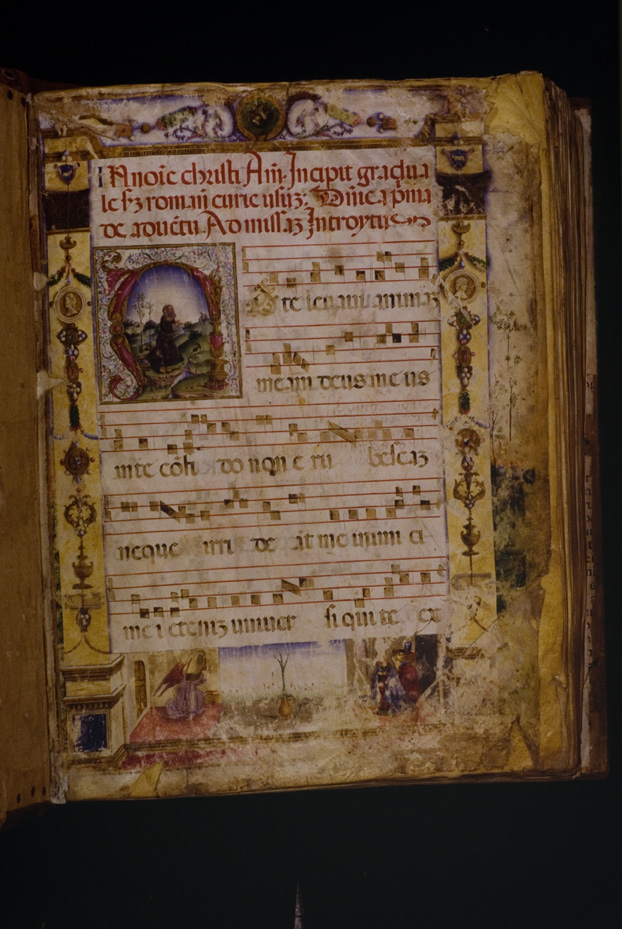 IN noīe christi Am̄. Incipit gradua
le sꝫ romanī curie usūꝫ. Dn̄ica pͥma
de aduētu Ad missaꝫ Introytus
Ad te leuaui animaꝫ
meam deus meus
in te cōfi do non e ru bescaꝫ
neque irri de āt me inimi ci
me i eteniꝫ uniuer si qui te ex